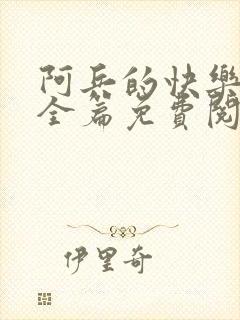 阿兵的快樂
全篇免費閱
伊里奇